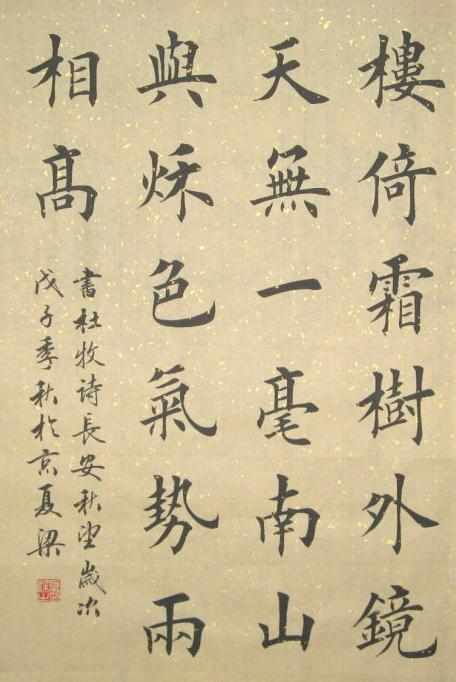 樓倚霜樹外鏡
天無一毫南山
與秌色氣勢兩
相高
書杜牧詩長安秋望歲次
戊子季秋於京夏梁